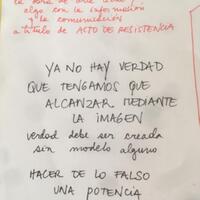 algo con la información
y la comunicación
a título de ACTO DE RESISTENCIA
YA NO HAY VERDAD
QUE TENGAMOS QUE
ALCANZAR MEDIANTE
LA IMAGEN
verdad debe ser creada
sin modelo alguno
HACER DE LO FALSO
UNA POTENCIA